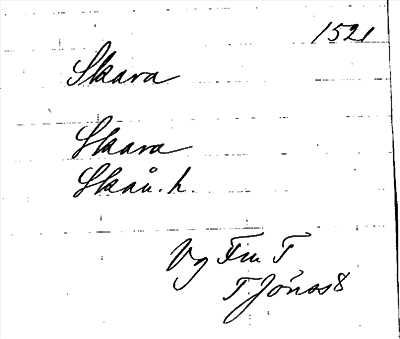 1521
Skara
Skara
Skån. h.
Vg Fm T
T. Jónas 8